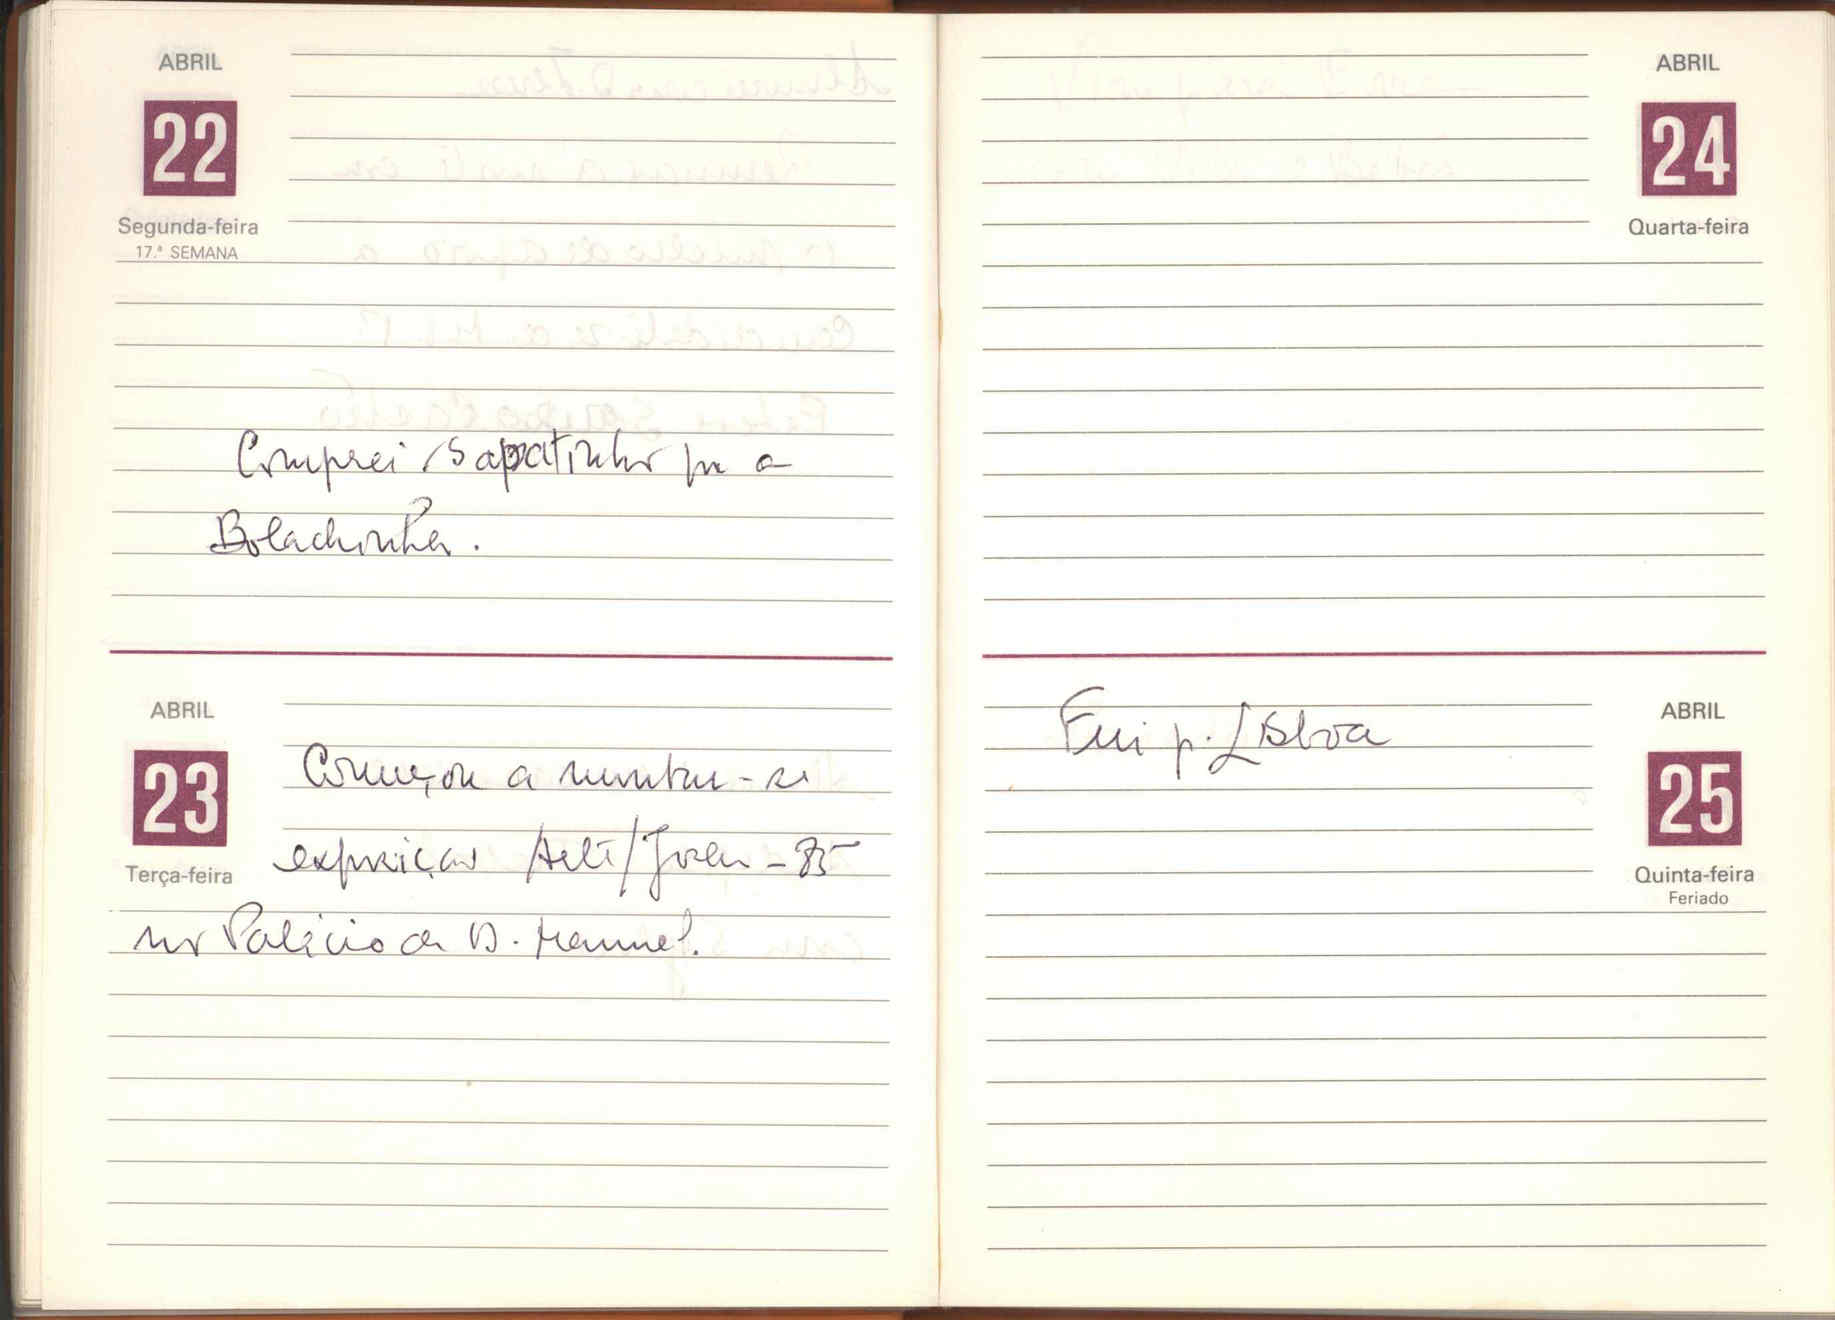 ABRIL
22
Segunda-feira
17.ª SEMANA
Comprei sapatinhos pa a
Bolachinha.
ABRIL
23
Terça-feira
Começou a montar-se
exposição Arte/Jovem-85
no Palácio de D. Manuel.
ABRIL
24
Quarta-feira
Fui p. Lisboa
ABRIL
25
Quinta-feira
Feriado